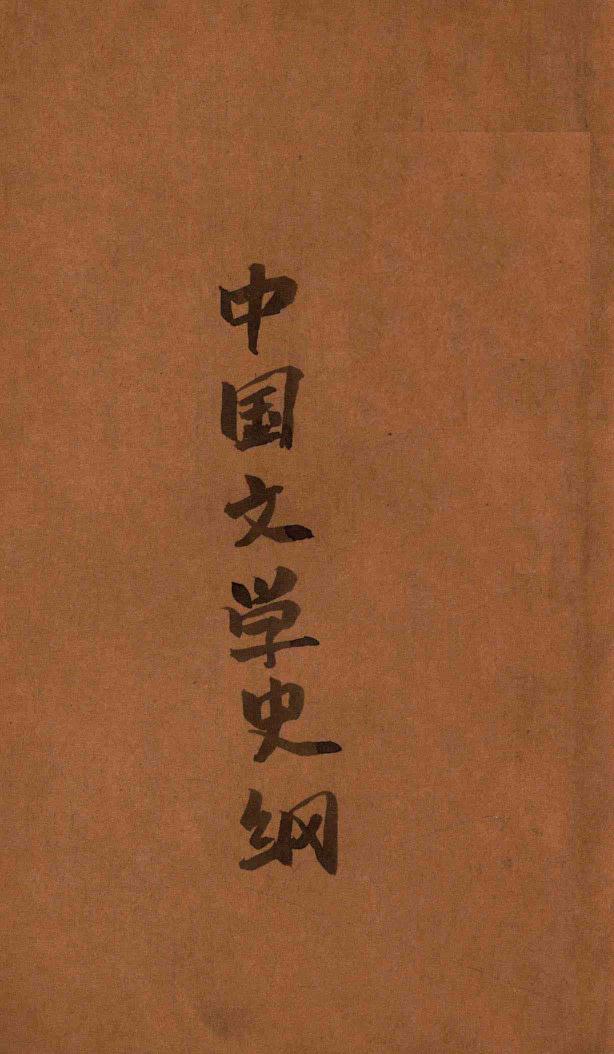 中国文学史纲